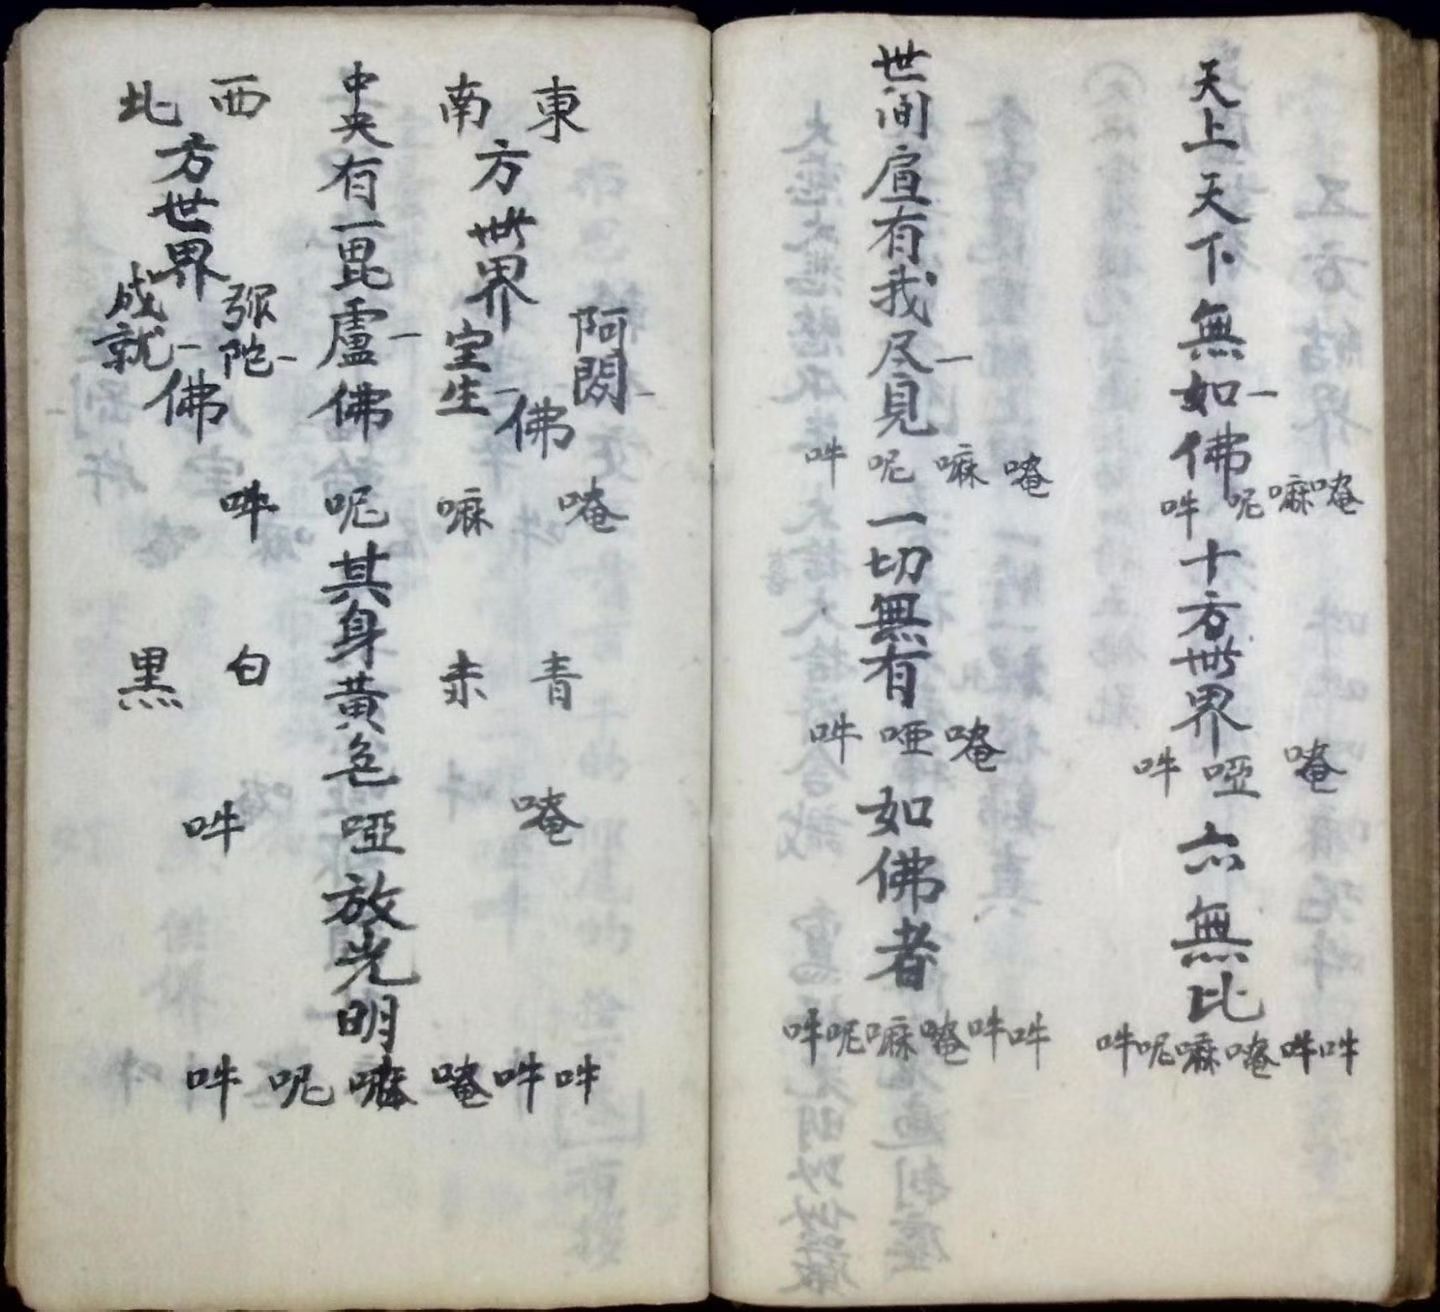 天上天下無如佛
唵嘛呢吽
十方世界
唵啞吽
亦無比
吽吽唵嘛呢吽
世间有我尽見
唵嘛呢吽
一切無有
唵啞吽
如佛者
吽吽唵嘛呢吽
東
南
方世界
阿閦
宝生
佛
中央有一毘盧佛
西
北
方世界
弥陀
成就
佛
唵嘛呢吽
青
赤
其身黃色
白
黑
唵啞吽
放光明
吽吽唵嘛呢吽